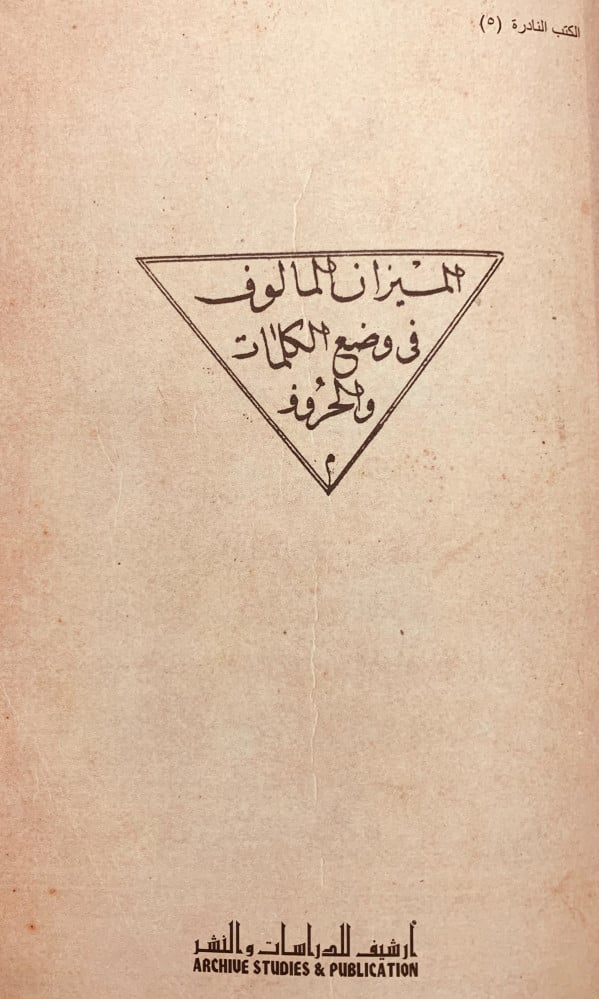 الكتب النادرة (٥)
الميزان المالوف
في وضع الكلمات
والحروف
م
أرشيف للدراسات والنشر
ARCHIVE STUDIES & PUBLICATION